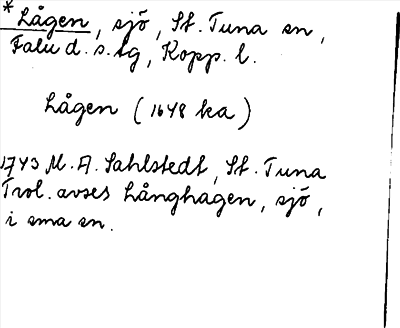 * Lågen, sjö, St. Tuna sn,
Falu d. s. lg, Kopp. l.
Lågen (1648 ka)
1743 M. A. Sahlstedt, St. Tuna
Trol. avses Långhagen, sjö,
i sma sn.